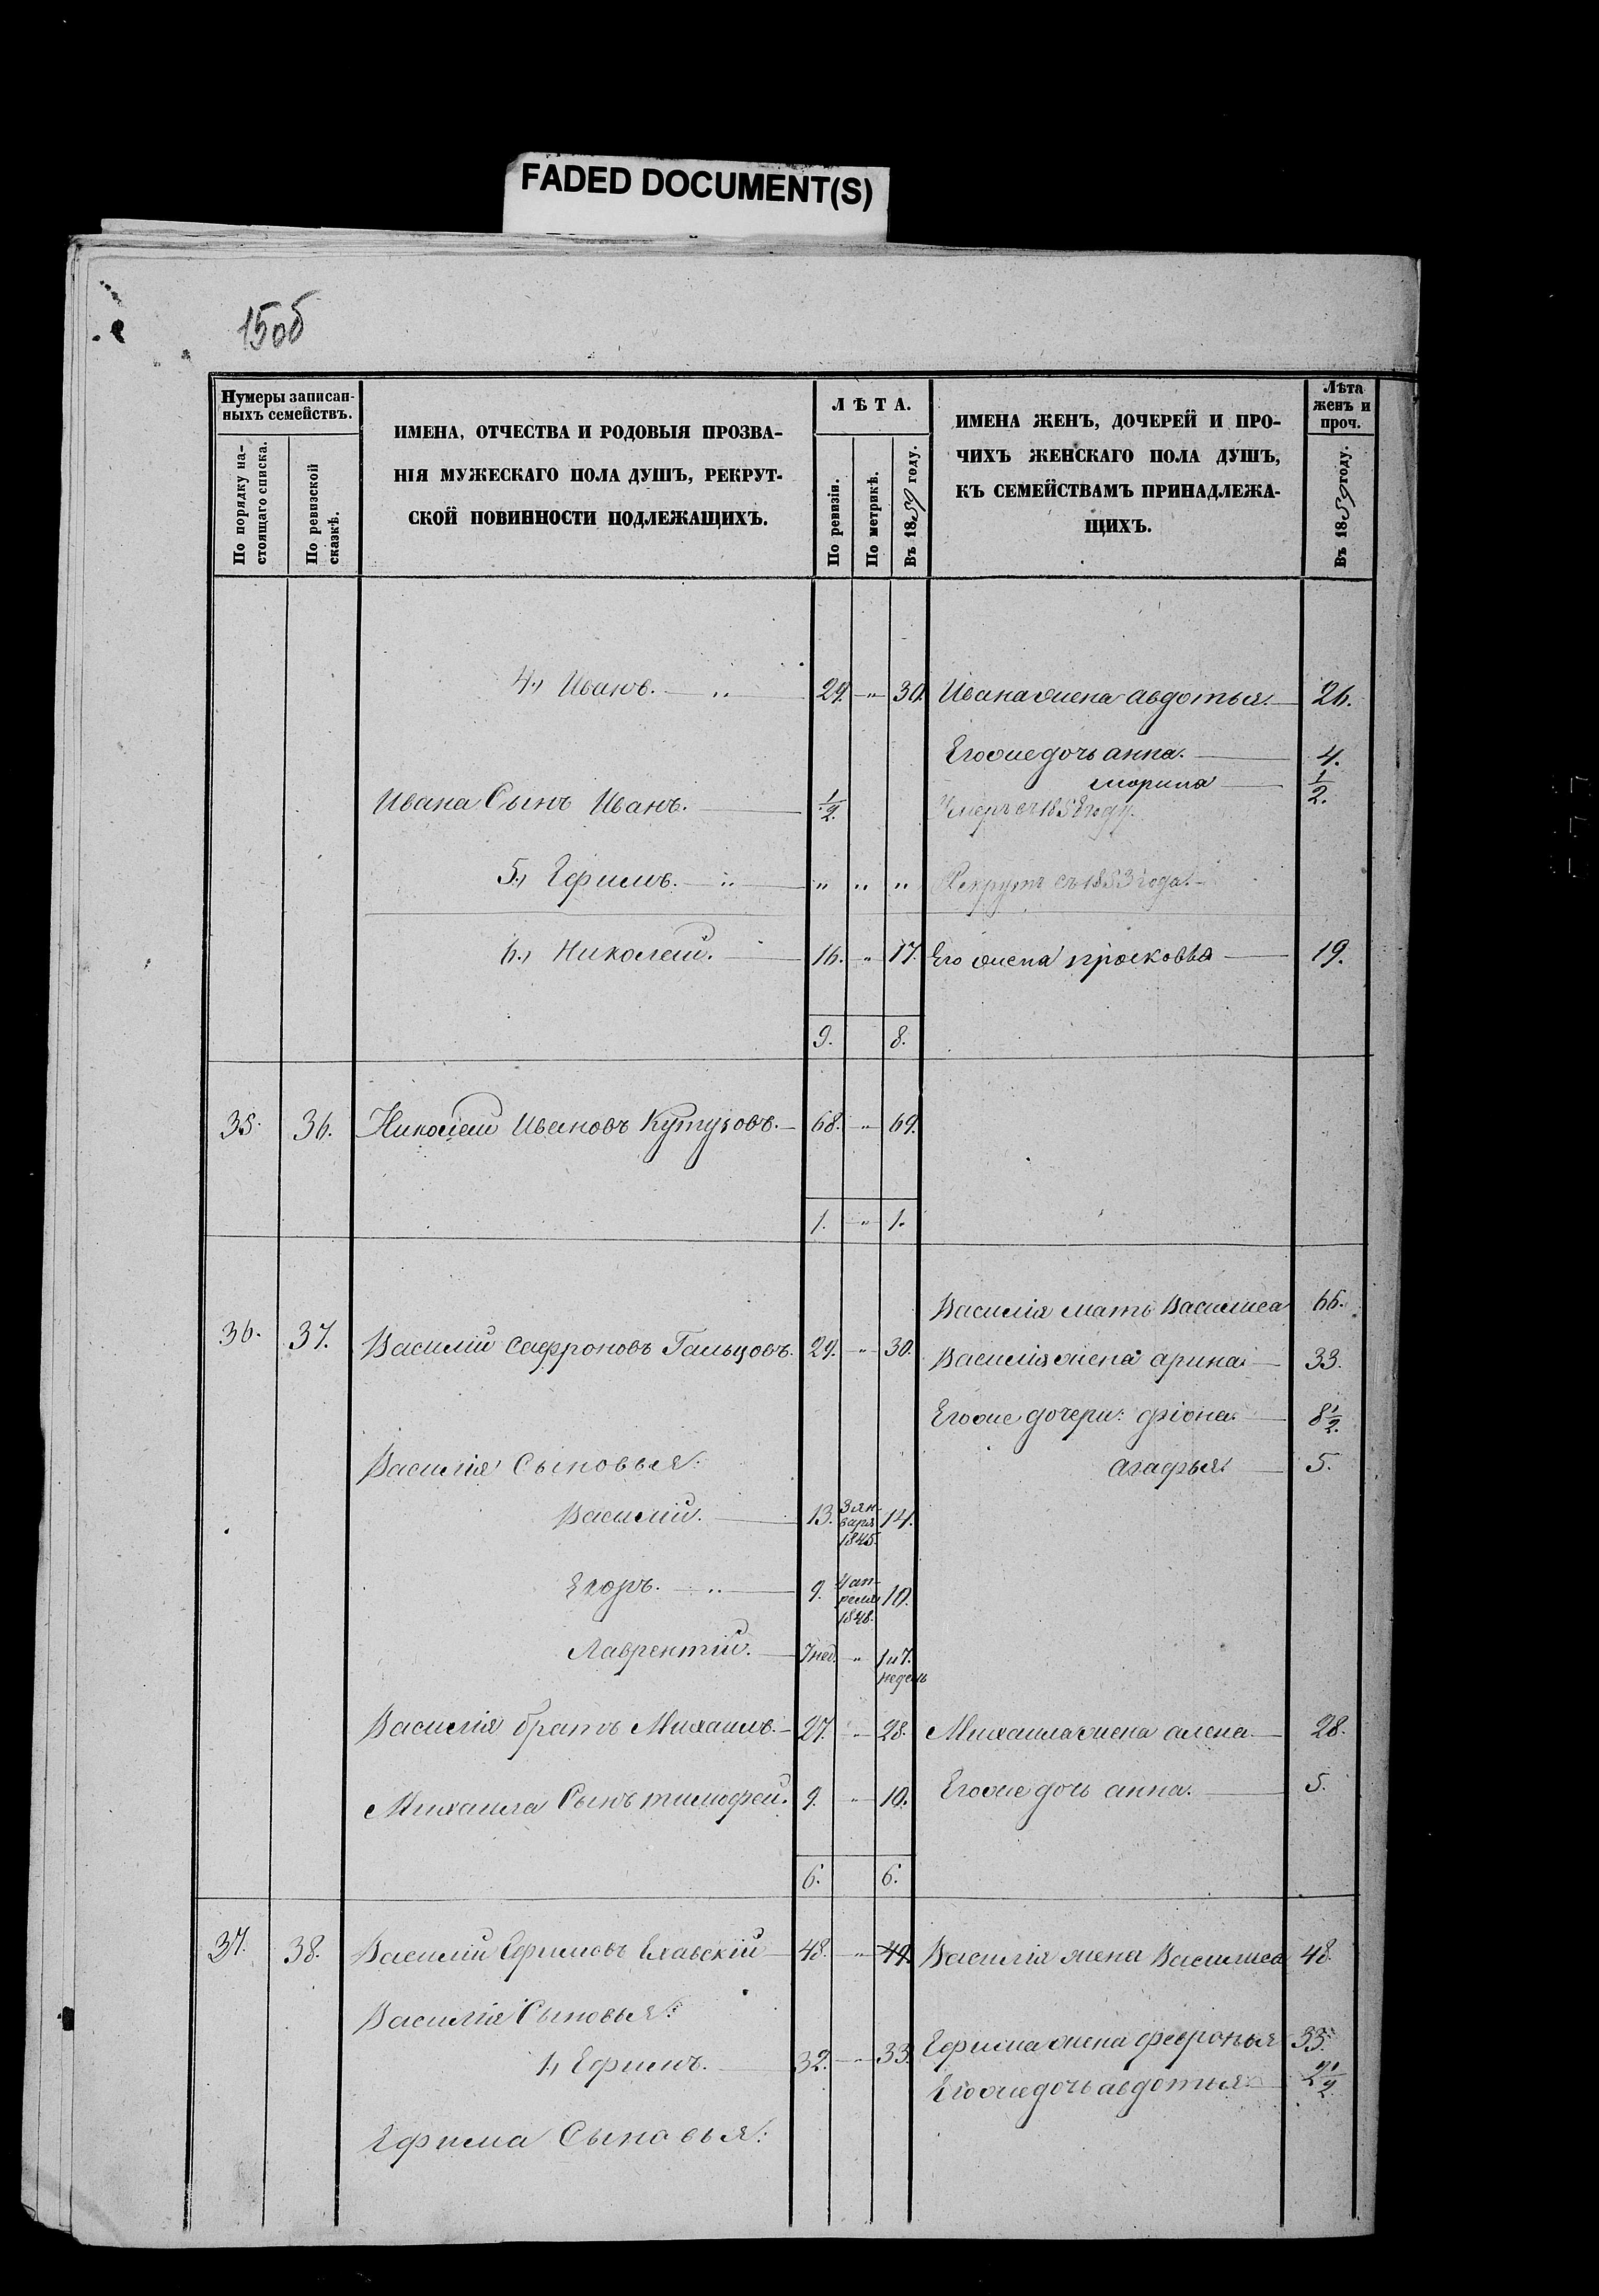 FADED DOCUMENT(S)
15об
Нумеры записан-
ныхъ семействъ.
По порядку на-
стоящаго списка.
По ревизской
сказкѣ.
ИМЕНА, ОТЧЕСТВА И РОДОВЫЯ ПРОЗВА-
НІЯ МУЖЕСКАГО ПОЛА ДУШЪ, РЕКРУТ-
СКОЙ ПОВИННОСТИ ПОДЛЕЖАЩИХЪ.
ЛѢТА.
По ревизіи.
По метрикѣ.
Въ 1859 году.
ИМЕНА ЖЕНЪ, ДОЧЕРЕЙ И ПРО-
ЧИХЪ ЖЕНСКАГО ПОЛА ДУШЪ,
КЪ СЕМЕЙСТВАМЪ ПРИНАДЛЕЖА-
ЩИХЪ.
Лѣта
женъ и
проч.
Въ 1859 году.
4., Иванъ. — „ 29. „ 30. Ивана жена авдотья. 26.
Егоже дочь анна. 4.
марина 1/2.
Ивана Сынъ Иванъ. 1/2. Умеръ въ 1858 году.
5., Ефимъ. „ „ „ „ Рекрутъ съ 1853 года.
6., Николай. 16. „ 17. Его жена просковья 19.
9. 8.
35. 36. Николай Ивановъ Кутузовъ. 68. „ 69.
1. „ 1.
Василія мать Василиса 66.
36. 37. Василій Сафроновъ Гальцовъ. 29. „ 30. Василія жена арина. 33.
Егоже дочери: фіона. 8 1/2.
Василія Сыновья: агафья. 5.
Василій. 13. 3 ян-
варя
1845. 14.
Егоръ. „ 9. 4 ап-
реля
1848. 10.
Лаврентій. 7 нед. „ 1 и 7.
недель
Василія братъ Михаилъ. 27. „ 28. Михаила жена алена 28.
Михаила Сынъ тимофей. 9. „ 10. Егоже дочь анна. 5.
6. 6.
37. 38. Василій Ефимовъ 48. „ 49. Василія жена Василиса 48.
Василія Сыновья:
1, Ефимъ. 32. „ 33. Ефима жена февронья 33.
Егоже дочь авдотья. 2 1/2.
Ефима Сыновья: